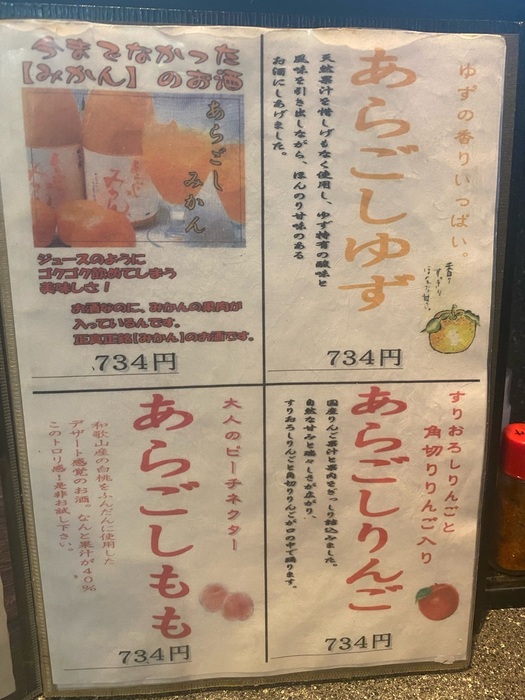 今までなかった
【みかん】のお酒
あらごし
みかん
ジュースのように
ゴクゴク飲めてしまう
美味しさ！
お酒なのに、みかんの果肉が
入っているんです。
正真正銘【みかん】のお酒です。
734円
ゆずの香りいっぱい。
あらごしゆず
天然果汁を惜しげもなく使用し、ゆず特有の酸味と
風味を引き出しながら、ほんのり甘味のある
お酒にしあげました。
734円
大人のピーチネクター
あらごしもも
和歌山産の白桃をふんだんに使用した
デザート感覚のお酒。なんと果汁が40%
このトロリ感！是非お試し下さい。
734円
すりおろしりんごと
角切りりんご入り
あらごしりんご
国産りんご果汁と果肉をぎっしり詰込みました。
自然な甘みと瑞々しさが広がり、
すりおろしりんごと角切りりんごが口の中で踊ります。
734円